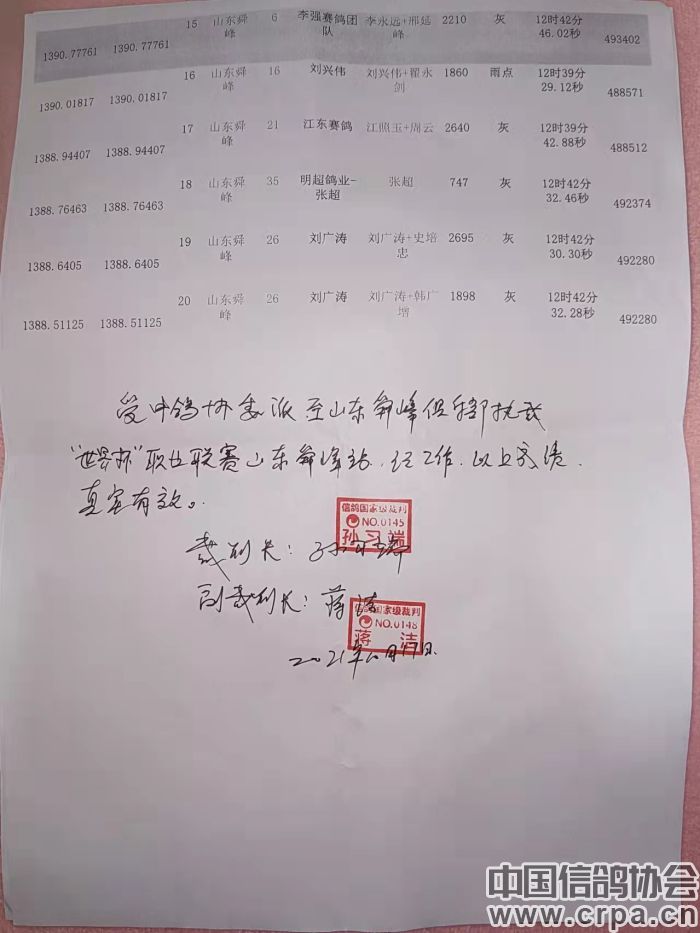 1390.77761 1390.77761 15 山东舜峰 6 李强赛鸽团队 李永远+邢延峰 2210 灰 12时42分46.02秒 493402
1390.01817 1390.01817 16 山东舜峰 16 刘兴伟 刘兴伟+翟永剑 1860 雨点 12时39分29.12秒 488571
1388.94407 1388.94407 17 山东舜峰 21 江东赛鸽 江照玉+周云 2640 灰 12时39分42.88秒 488512
1388.76463 1388.76463 18 山东舜峰 35 明超鸽业-张超 张超 747 灰 12时42分32.46秒 492374
1388.6405 1388.6405 19 山东舜峰 26 刘广涛 刘广涛+史培忠 2695 灰 12时42分30.30秒 492280
1388.51125 1388.51125 20 山东舜峰 26 刘广涛 刘广涛+韩广增 1898 灰 12时42分32.28秒 492280
受中鸽协委派至山东舜峰俱乐部执裁
"世界杯"职业联赛山东舜峰站,经工作,以上成绩
真实有效。
信鸽国家级裁判
NO.0145
孙习端
裁判长:孙习端
副裁判长:蒋清
信鸽国家级裁判
NO.0148
蒋清
2021年 月17日
中国信鸽协会
www.crpa.cn